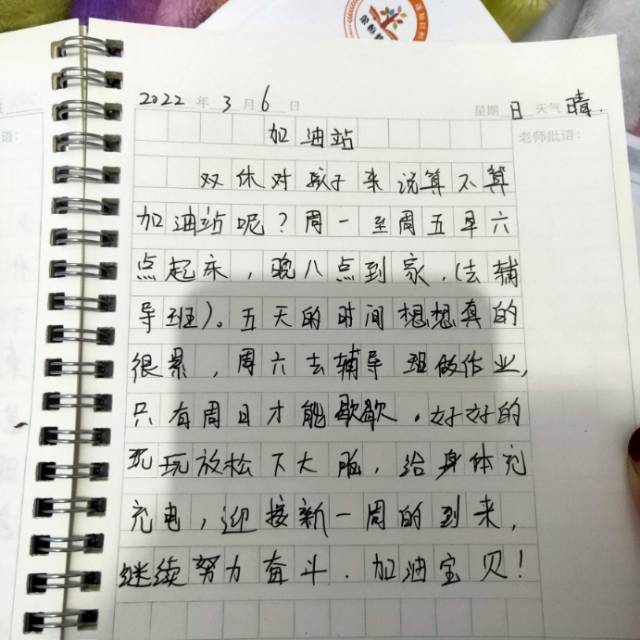 2022 年 3 月 6 日 星期 日 天气 晴.
加油站
老师批语:
双休对孩子来说算不算
加油站呢?周一至周五早六
点起床,晚八点到家.(去辅
导班)。五天的时间想想真的
很累,周六去辅导班做作业,
只有周日才能歇歇.好好的
玩玩放松下大脑,给身体充
充电,迎接新一周的到来,
继续努力奋斗.加油宝贝!